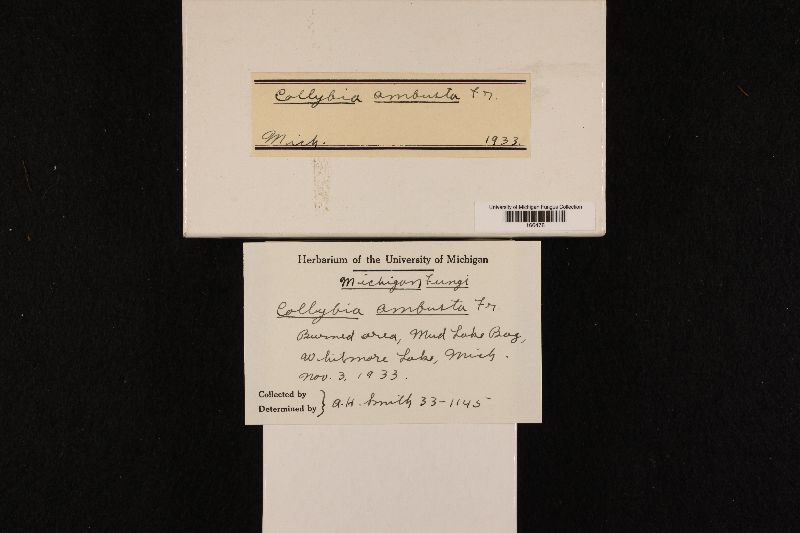 Collybia ambusta Fr.
Mich. 1933.
University of Michigan Fungus Collection
Herbarium of the University of Michigan
Michigan Fungi
Collybia ambusta Fr.
Burned area, Mud Lake Bog,
Whitmore Lake, Mich.
Nov. 3, 1933.
Collected by
Determined by } A.H. Smith 33-1145